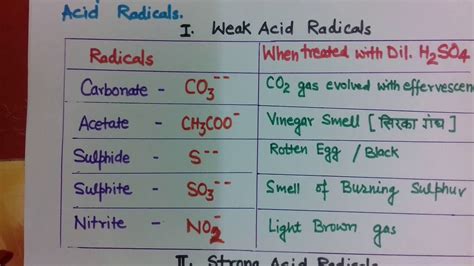 Acid Radicals.
I. Weak Acid Radicals
Radicals When treated with Dil. H2SO4
Carbonate - CO3-- CO2 gas evolved with effervescen
Acetate - CH3COO- Vinegar Smell [सिरका गंध]
Sulphide - S-- Rotten Egg / Black
Sulphite - SO3-- Smell of Burning Sulphur
Nitrite - NO2- Light Brown gas
II. Strong Acid Radicals